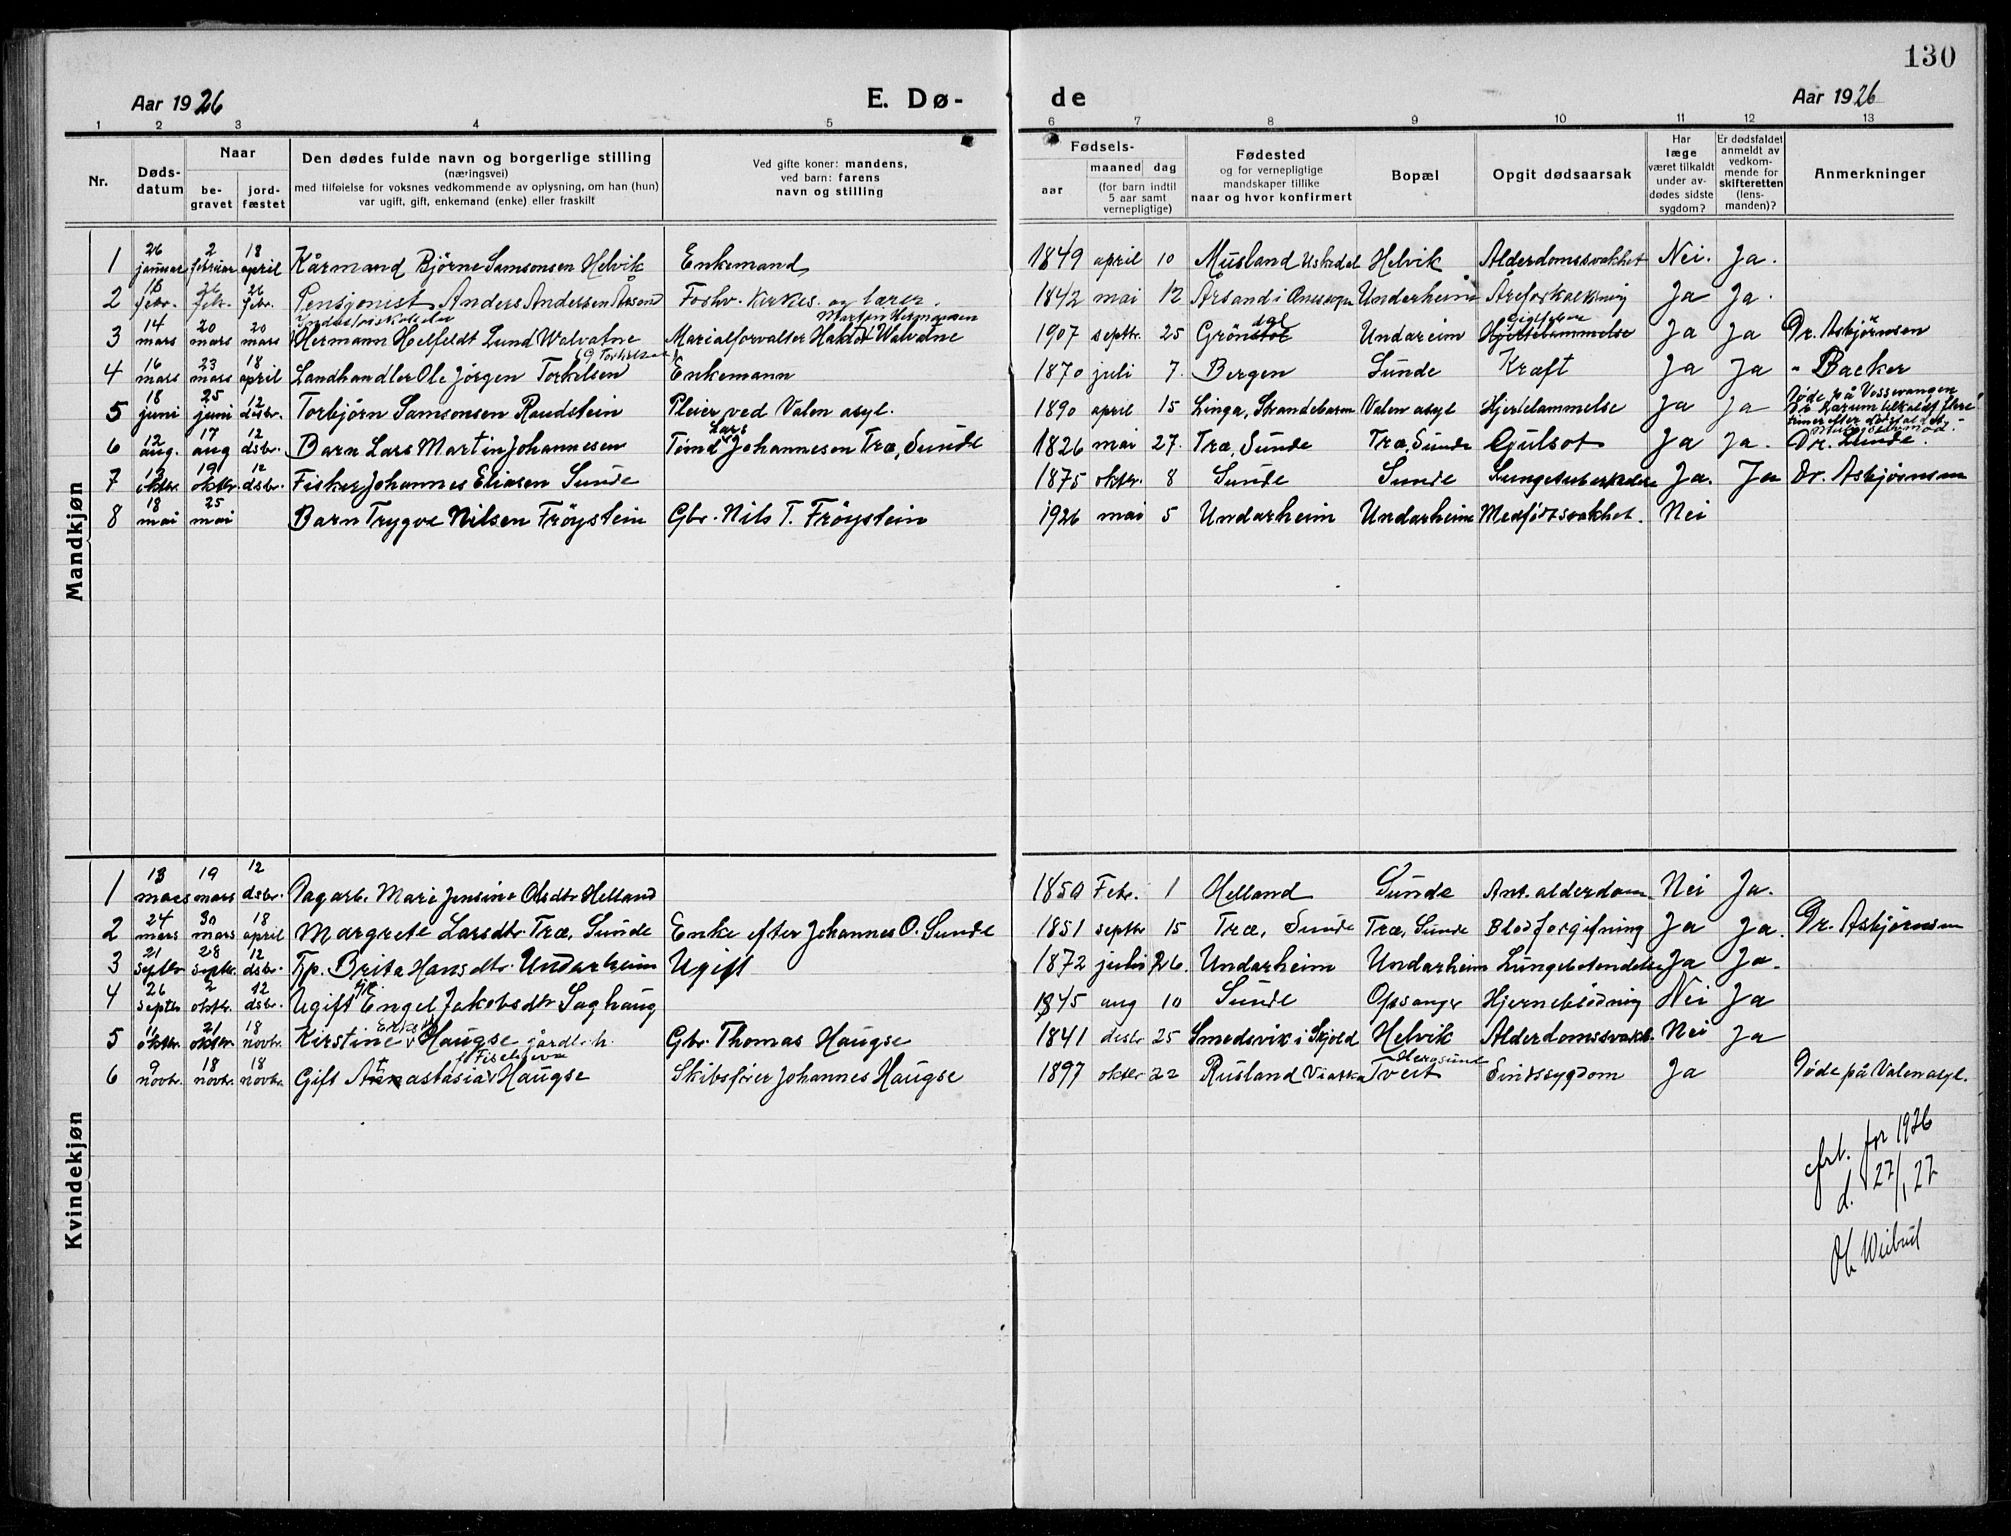 130
Aar 1926 E. Dø- de Aar 1926
1 2 3 4 5 6 7 8 9 10 11 12 13
Nr. Døds-datum Naar be-gravet jord-fæstet
Den dødes fulde navn og borgerlige stilling
(næringsvei)
med tilføielse for voksnes vedkommende av oplysning, om han (hun)
var ugift, gift, enkemand (enke) eller fraskilt
Ved gifte koner: mandens,
ved barn: farens
navn og stilling
Fødsels-
aar maaned dag
(for barn indtil
5 aar samt
vernepligtige)
Fødested
og for vernepligtige
mandskaper tillike
naar og hvor konfirmert
Bopæl
Opgit dødsaarsak
Har
læge
været tilkaldt
under av-
dødes sidste
sygdom?
Er dødsfaldet
anmeldt av
vedkom-
mende for
skifteretten
(lens-
manden)?
Anmerkninger
Mandkjøn
1 26 januar 2 februar 18 april Kårmand Bjørne Samsonsen Helvik Enkemand 1849 april 10 Musland Uskedal Helvik Alderdomssvakhet Nei. Ja.
2 febr. 26 feb. 26 febr. Pensjonist Anders Andersen Årsand Forhv. Kirkes. og lærer. 1842 mai 12 Årsand i Ønes sogn Underheim Åreforkalkning Ja Ja.
3 14 mars 20 mars 20 mars Hermann Helfeldt Lund Walvatne Marialforvalter Walvatne 1907 septbr. 25 Undarheim Hjertelammelse Ja Ja Dr. Asbjørnsen
4 16 mars 23 mars 18 april Landhandler Ole Jörgen Torkelsen Enkemann 1870 juli 7. Bergen Sunde Kræft Ja Ja " Backer
5 18 juni 25 juni 12 desbr. Torbjörn Samsonsen Raudstein Pleier ved Valen asyl. 1890 april 15 Linga, Strandebarm Valen asyl Hjertelammelse Ja Ja Døde på Vossevangen
6 12 aug. 17 aug 12 dsbr. Barn Lars Martin Johannesen Tömd Lars Johannesen Træ, Sunde 1826 mai 27. Træ, Sunde Træ, Sunde Gulsot Ja Ja. Dr. Sunde.
7 13 oktbr. 19 oktbr 12 dsbr. Fisker Johannes Eliasen Sunde 1875 oktbr. 8 Sunde Sunde Lungetuberkulose Ja. Ja Dr. Asbjørnsen
8 18 mai 25 mai Barn Trygve Nilsen Fröystein Gbr. Nils T. Fröystein 1926 mai 5 Undarheim Undarheim Medfödt svakhet. Nei
Kvindekjøn
1 13 mars 19 mars 12 dsbr. Dagarb. Mari Jensine Olsdtr Helland 1850 Febr. 1 Helland Sunde Ant. alderdom Nei Ja.
2 24 mars 30 mars 18 april Margrete Larsdtr. Træ, Sunde Enke efter Johannes O. Sunde 1851 septbr 15 Træ, Sunde Træ, Sunde Blodforgifning Ja Ja. Dr. Asbjørnsen
3 21 septbr 28 septbr. 12 dsbr. Tjp. Brita Hansdtr. Undarheim Ugift 1872 juli 26. Undarheim Undarheim Lungebetendelse Ja Ja.
4 26 septbr 2 oktbr. 12 dsbr. Ugift Engel Jakobsdtr Saghaug 1845 aug 10 Sunde Opsanger Hjerneblödning Nei Ja
5 11 oktbr. 21 oktbr. 18 novbr. Kirstine Haugse Gbr. Thomas Haugse 1841 desbr 25 Smedsvik i Skjold Helvik Alderdomssvakh. Nei Ja
6 9 novbr. 18 novbr. 18 novbr. Gift Anastasia Haugse Skibsförer Johannes Haugse 1897 oktbr 22 Rusland Viatka Tveit Sindssygdom Ja Döde på Valen asyl.
for 1926
d. 27/1 27